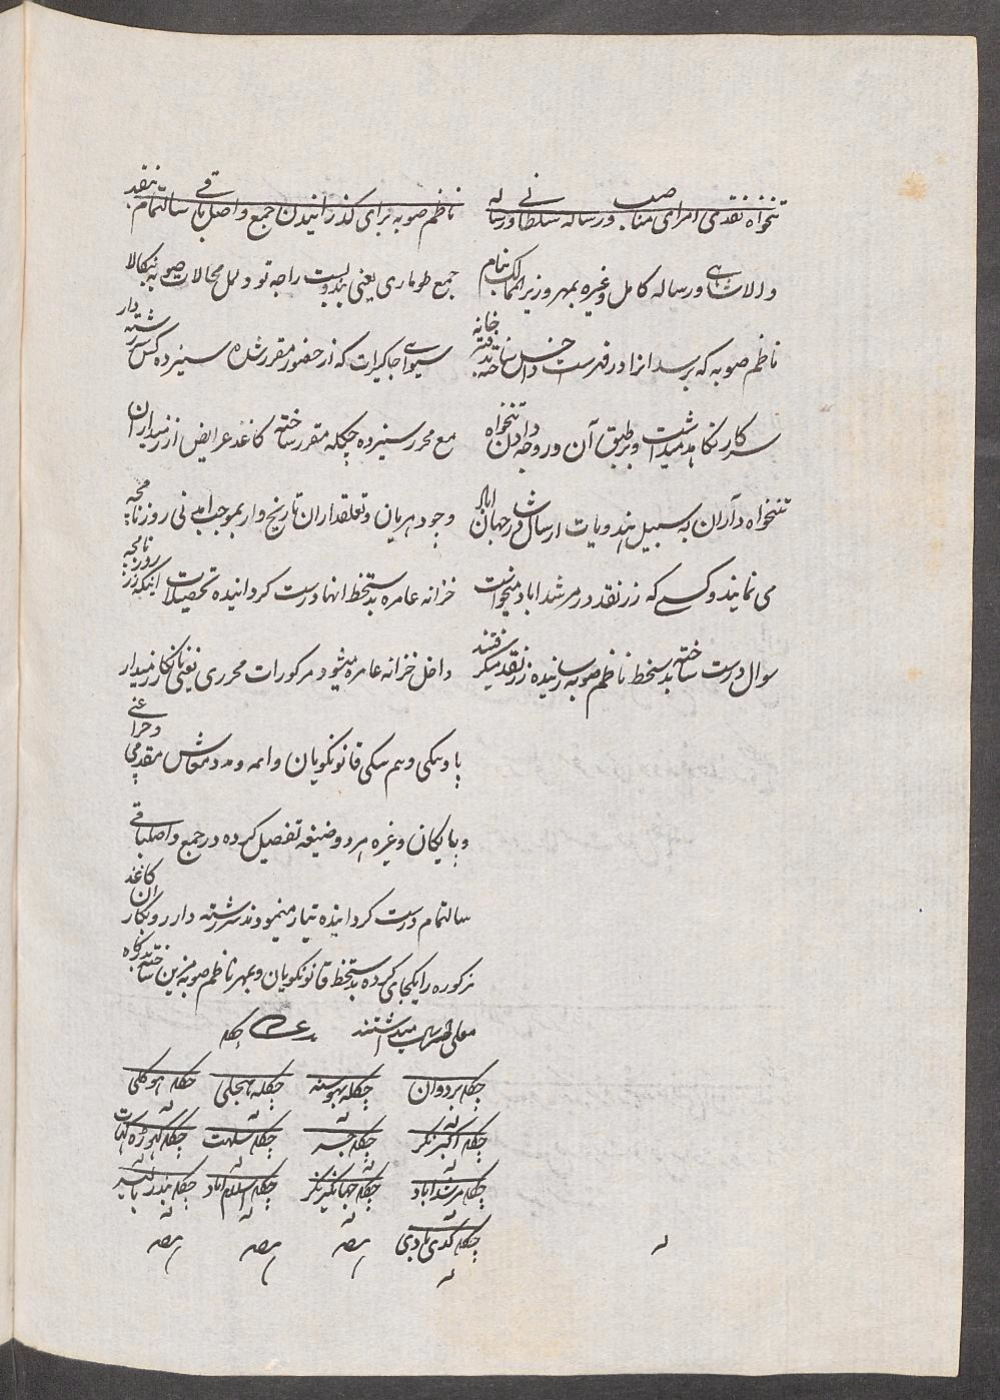 تنخواه نقدی امرای مناصب و رساله سلطانی و رساله
والاشاهی و رساله کامل وغیره بمهر وزیر الممالک بنام
ناظم صوبه که برسد انرا در فهرست داخل ساخته بدفتر خانه
سرکار نگاه میداشت و بر طبق آن در وجه دادن تنخواه
تنخواه دآران به سبیل هندویات ارسال در شاه جهان اباد
می نمایند و کسے که زر نقد در مرشداباد میخواست
سوال درست ساخته بدستخط ناظم صوبه رسانیده زر نقد میگرفتند
ناظم صوبه برای گذرانیدن جمع واصل باقے سالتمام بنقد
جمع طوماری یعنی بندوبست راجه تودرمل محالات صوبه بنکالا
سیوای جاگیرات که از حضور مقرر شده سیزده کس سررشته دار
مع محرر سیزده چکله مقرر ساخته کاغذ عرایض از زمیداران
وجودهریان و تعلقداران تاریخ وار بموجب روزنامجه
خزانه عامره بدستخط انها درست کردانیده تحصیلات اینکه زر روزنامجه
داخل خزانه عامره میشود مرکورات محرری یعنی نانکار زمیدار
یا ونیکی و نیم نیکی قانونکویان و ایمه و مدد معاش مقدمی
و پایکان وغیره تفصیل کرده در جمع واصلباقے
سالتمام درست کردانیده تیار مینمودند سررشته دار روبکار ان کاغذ
مزکوره را یکجای کرده بدستخط قانونکویان و بمهر ناظم صوبه مزین ساخته بدرگاه
معلی میداشتند چکله
چکله بردوان چکله بهوسنه چکله هجلی چکله هوکلی
چکله اکبرنگر چکله جسر چکله سلهت چکله کهوڑه کهات
چکله مرشداباد چکله جهانگیرنگر چکله اسلام اباد چکله بندر بالیسر
چکله کدی بادی